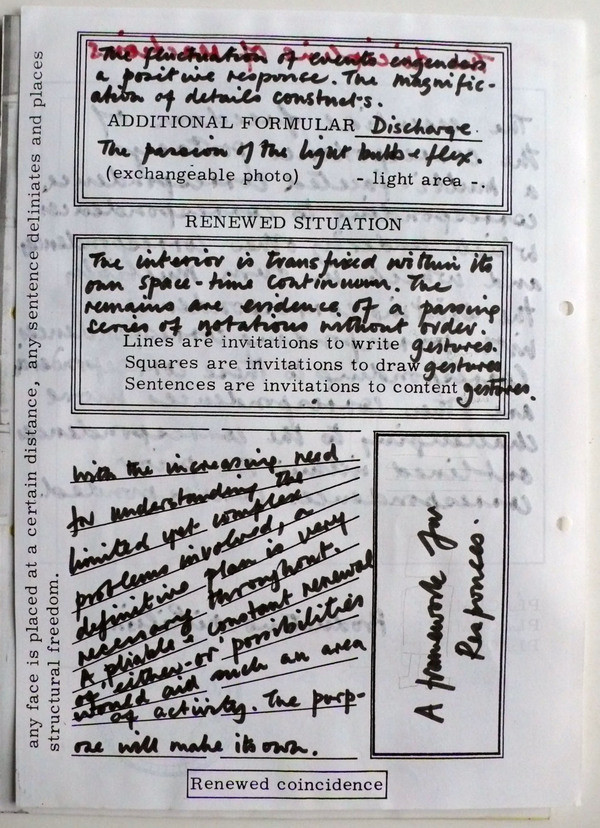 The fluctuation of events engenders
a positive responce. The magnific-
ation of details constructs.
ADDITIONAL FORMULAR Discharge.
The passion of the light bulbs & flex.
(exchangeable photo) - light area -.
RENEWED SITUATION
The interior is transfixed within its
own space-time continuum. The
remains are evidence of a passing
series of notations without order.
Lines are invitations to write gestures.
Squares are invitations to draw gestures
Sentences are invitations to content gestures.
With the increasing need
for understanding the
limited yet complex
problems involved, a
definitive plan is very
necessary throughout.
A pliable & constant renewal
of 'either-or' possibilities
would aid such an area
of activity. The purp-
ose will make its own.
A framework for
Responces.
Renewed coincidence
any face is placed at a certain distance, any sentence deliniates and places
structural freedom.